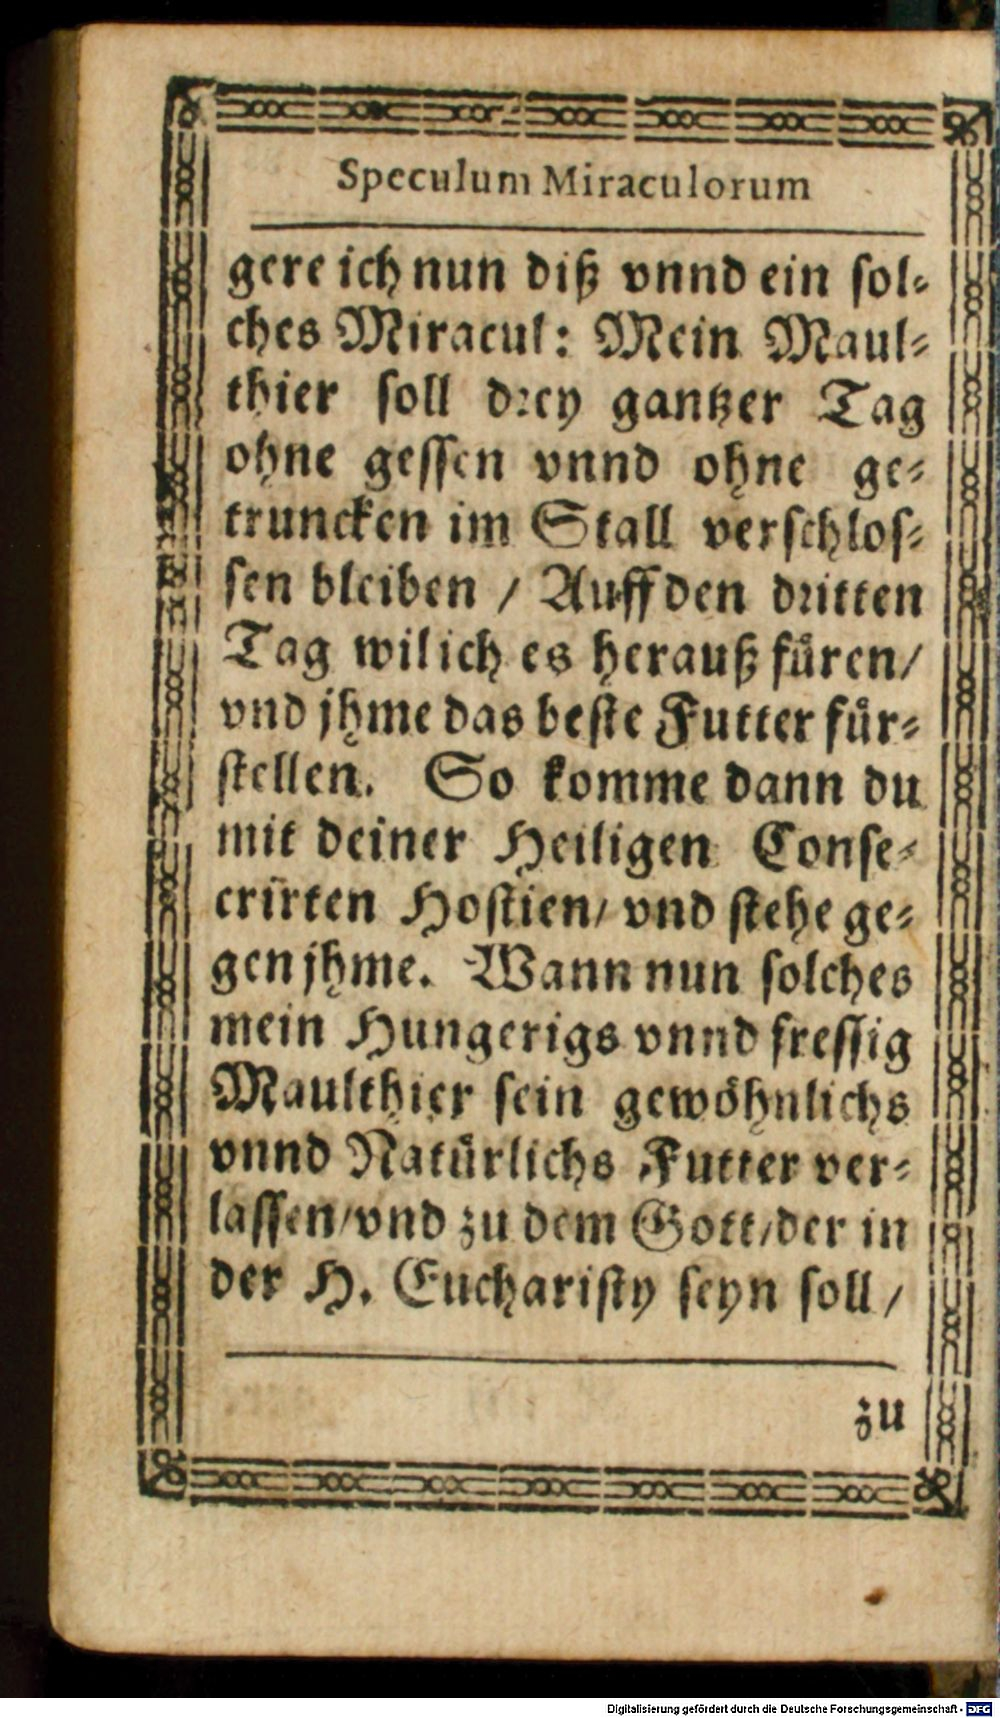 Speculum Miraculorum
gere ich nun diß vnnd ein sol-
ches Miracul: Mein Maul-
thier soll drey gantzer Tag
ohne gessen vnnd ohne ge-
truncken im Stall verschlos-
sen bleiben / Auff den dritten
Tag wil ich es herauß füren/
vnd jhme das beste Futter für-
stellen. So komme dann du
mit deiner Heiligen Conse-
crirten Hostien/ vnd stehe ge-
gen jhme. Wann nun solches
mein Hungerigs vnnd fressig
Maulthier sein gewöhnlichs
vnnd Natürlichs Futter ver-
lassen/vnd zu dem Gott/der in
der H. Eucharisty seyn soll /
zu
Digitalisierung gefördert durch die Deutsche Forschungsgemeinschaft - DFG